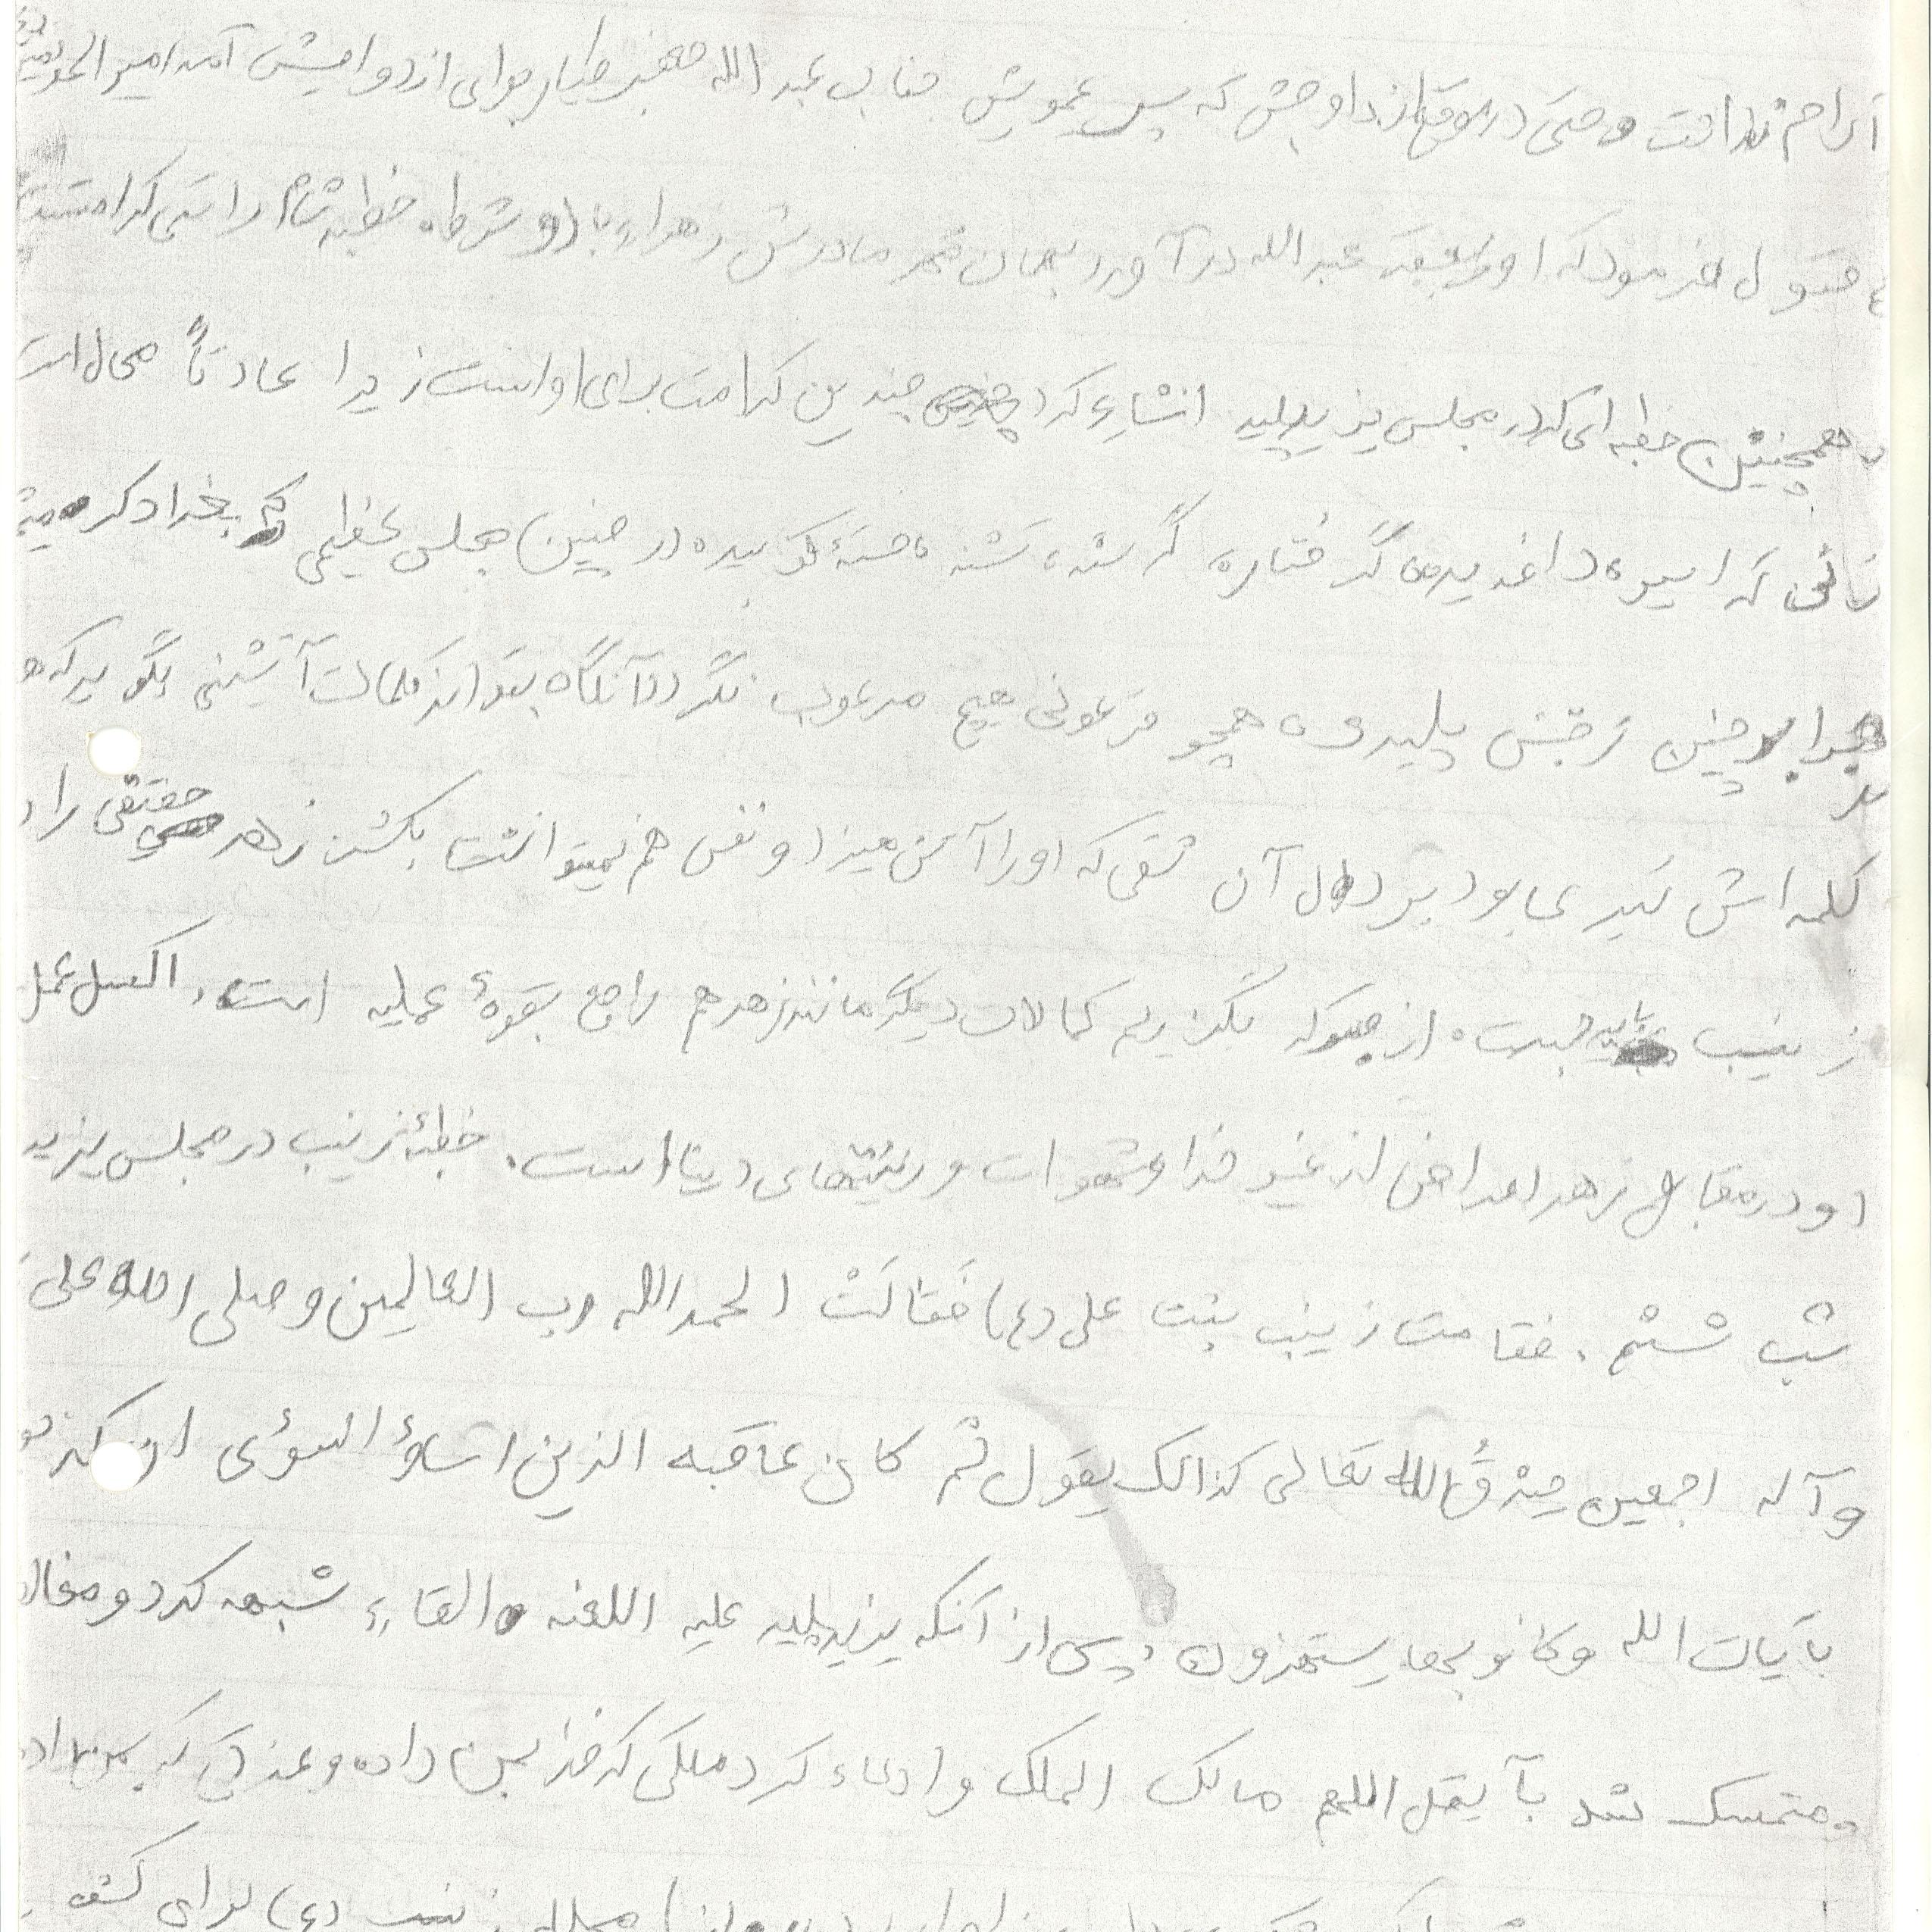 آرام نداشت و حتی در موقع ازدواجش که پسر عمویش جناب عبدالله جعفر طیار برای ازدواجش آمد امیر المومنین
ع قبول فرمود که او را بعقد عبدالله درآورد بهمان مهر مادرش زهراء با دو شرط خطبه شام راستی کرامتست
و همچنین خطبه ای که در مجلس یزید پلید انشاء کرد چندین کرامت برای او است زیرا عادتاً محال است
زنانی که اسیر، داغدیده گرفتار، گرسنه، تشنه، خسته کوبیده در چنین مجلس عظیمی
برابر چنین رجس پلیدی، همچو فرعونی هیچ مرعوب نگردد آنگاه بتواند کلمات آتشینی بگوید که هر
کلمه اش تیری بود بر دل آن شقی که او را آتش میزد و نفس هم نمیتوانست بکشد زهد حقیقی را در
زینب باید جست، از صبر که بگذریم کمالات دیگر مانند زهد هم راجع بقوۀ عملیه است.
او در مقابل زهد اعراض از غیر خدا و شهوات و زینتهای دینا است. خطبۀ زینب در مجلس یزید
شب ششم. فقامت زینب بنت علی (ع) فقالَتْ الحمدالله رب العالمین و صلی الله علی
و آله اجمعین صدقُ الله تعالی کذالک یقول ثم کان عاقبه الذین اساؤ السوؤی ان کذبو
بآیات الله و کانو بها یستهزون، پس از آنکه یزید پلید علیه اللعنه القاء شبهه کرد و مغالطه
و متمسک شد بآیه قل اللهم مالک الملک و ادعاء کرد ملکی که خدا بمن داده و عزتی که بمن داده
زینب (ع) برای کشف